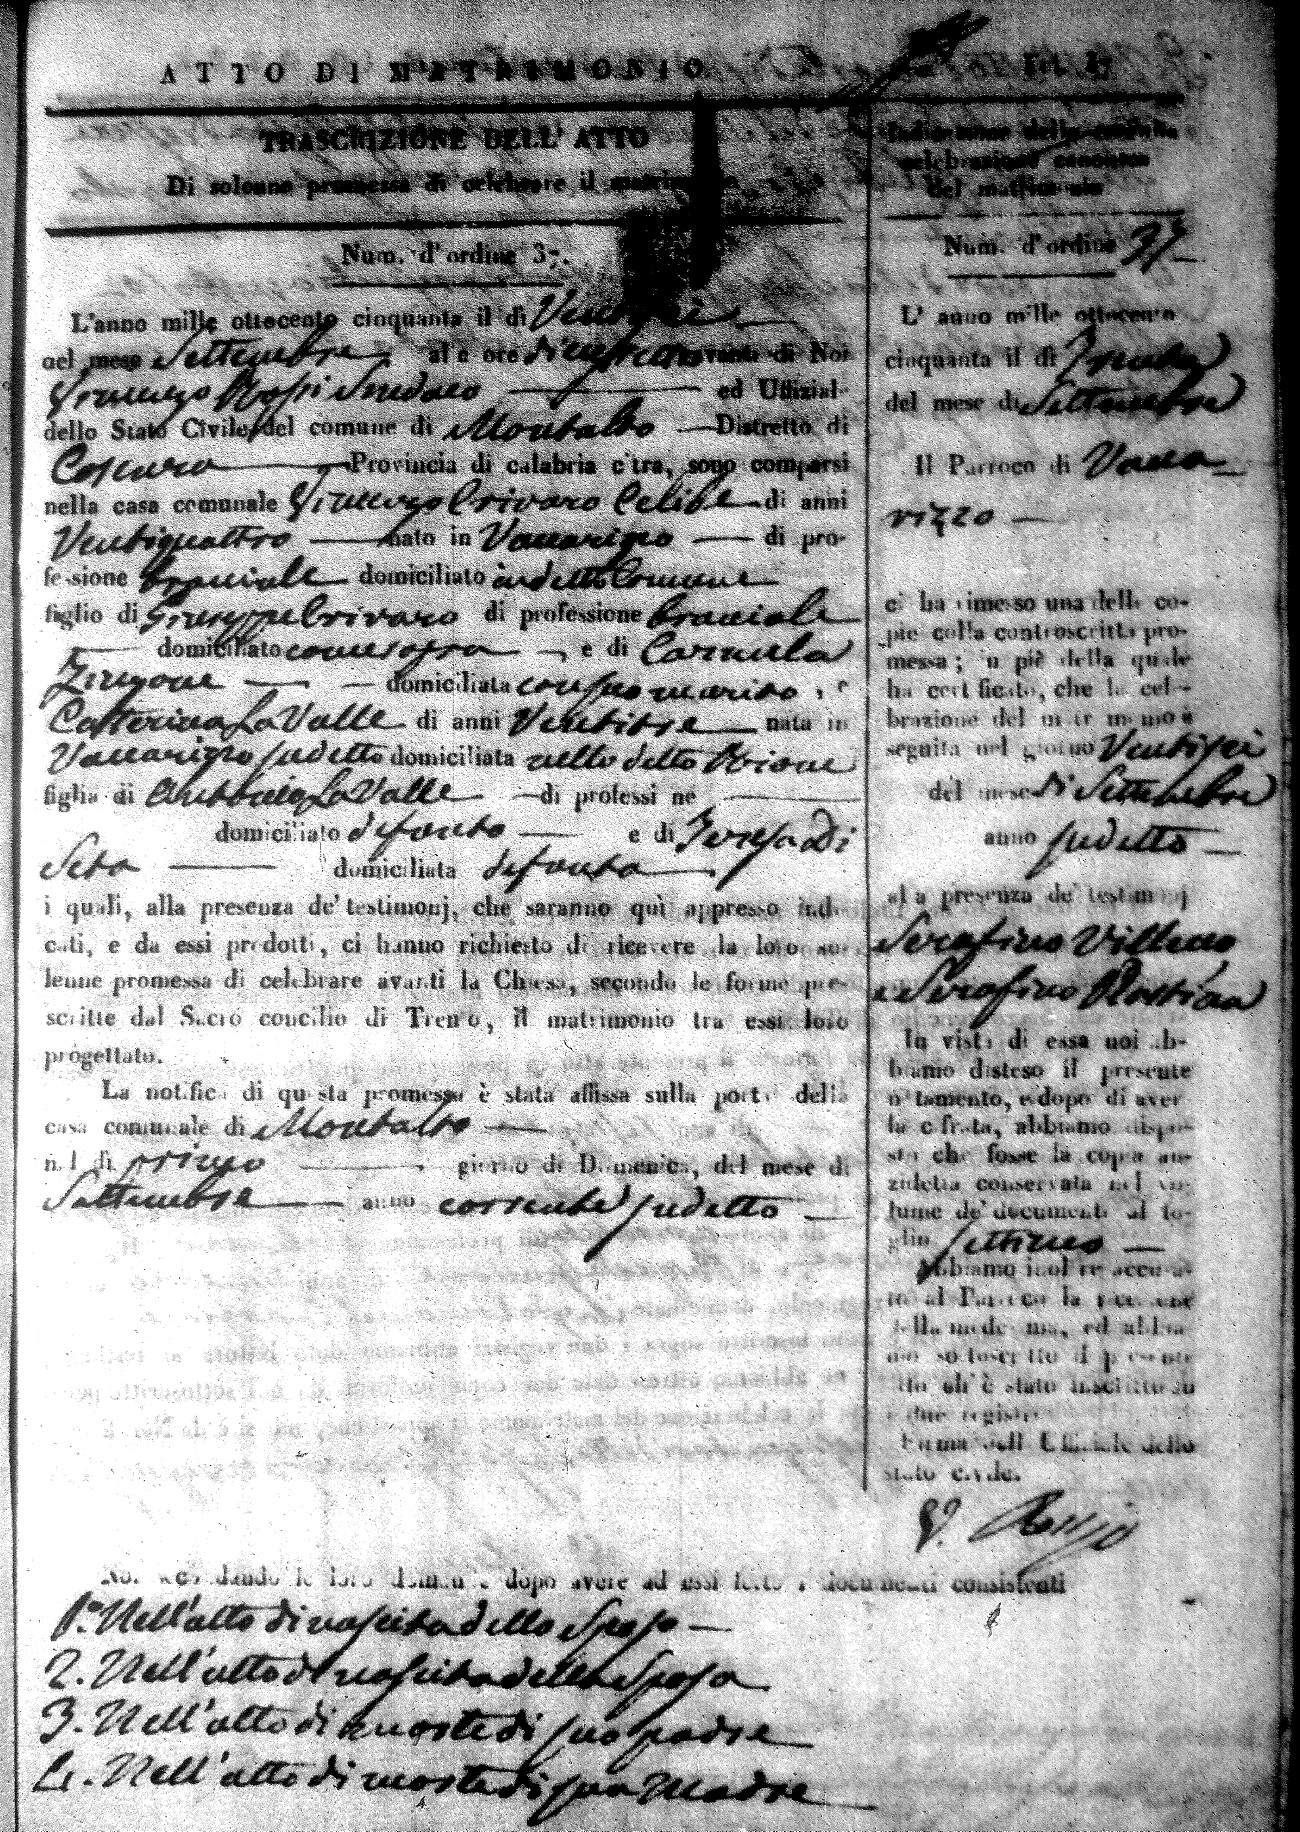 ATTO DI MATRIMONIO
TRASCRIZIONE DELL' ATTO
Di solenne promessa di celebrare il matrimonio
Num. d'ordine 37.
L'anno mille ottocento cinquanta il dì
nel mese Settembre alle ore avanti di Noi
Vincenzo Rossi Sindaco ed Uffizial
dello Stato Civile del comune di Montalto Distretto di
Cosenza Provincia di calabria citra, sono comparsi
nella casa comunale Vincenzo Crivaro Celibe di anni
Ventiquattro nato in Vaccarizzo di pro-
fessione braciale domiciliato in detto Comune
figlio di Giuseppe Crivaro di professione braciale
domiciliato come sopra, e di Carmela
Zingone domiciliata con suo marito, e
Catterina La Valle di anni Ventitre nata in
Vaccarizzo sudetto domiciliata nello detto Rione
figlia di Antonio La Valle di professi ne
domiciliato defonto e di Teresa Di
Seta domiciliata defonta
i quali, alla presenza de' testimonj, che saranno quì appresso indi-
cati, e da essi prodotti, ci hanno richiesto di ricevere la loro so-
lenne promessa di celebrare avanti la Chiesa, secondo le forme pre-
scritte dal Sacro concilio di Trento, il matrimonio tra essi loro
progettato.
La notifica di questa promessa è stata affissa sulla porta della
casa comunale di Montalto
nel dì primo giorno di Domenica, del mese di
Settembre anno corrente sudetto
Indicazione della seguita
celebrazione canonica
del matrimonio
Num. d'ordine 37
L' anno mille ottocento
cinquanta il dì Trenta
del mese di Settembre
Il Parroco di Vacca
rizzo
ci ha rimesso una delle co-
pie colla controscritta pro-
messa; in piè della quale
ha certificato, che la cele-
brazione del matrimonio è
seguita nel giorno Ventisei
del mese di Settembre
anno sudetto
alla presenza de' testimonj
Serafino Villecco
e Serafino
In vista di essa noi ab-
biamo disteso il presente
notamento, e dopo di aver
la cifrata, abbiamo dispo-
sto che fosse la copia an-
zidetta conservata nel vo-
lume de' documenti al fo-
glio settimo
Abbiamo inoltre accusa-
to al Parroco la ricezione
della medesima, ed abbia-
mo sottoscritto il presente
atto ch'è stato inscritto su
i due registri
Firma dell' Uffiziale dello
stato civile.
V. Rossi
Noi secondando le loro domande dopo avere ad essi letto i documenti consistenti
1.° Nell'atto di nascita dello Sposo
2. Nell'atto di nascita della Sposa
3. Nell'atto di morte di suo padre
4. Nell'atto di morte di sua Madre